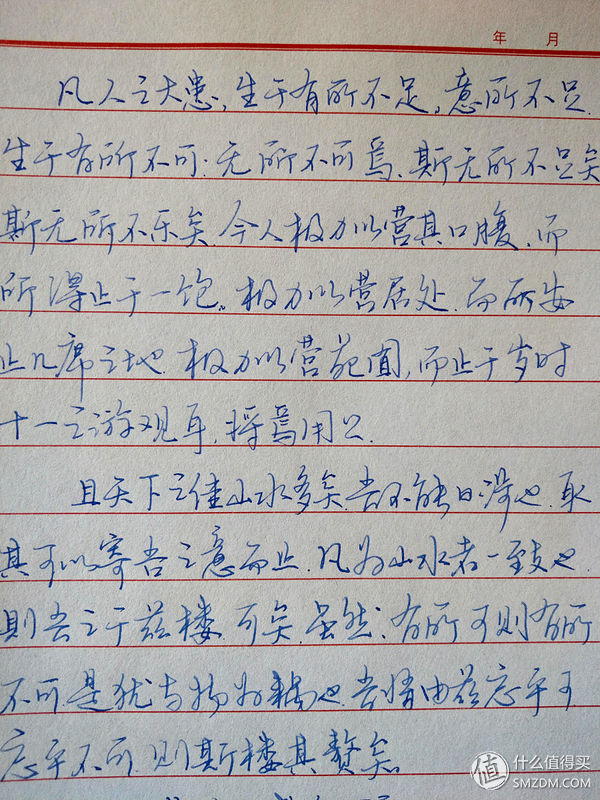 年 月
凡人之大患，生于有所不足，意所不足
生于有所不可．无所不可焉．斯无所不足矣
斯无所不乐矣．今人极力以营其口腹，而
所得止于一饱。极力以营居处．而所安
止几席之地．极力以营苑囿，而止于岁时
十一之游观耳．将焉用之
且天下之佳山水多矣．吾不能日涉也．取
其可以寄吾之意而止．凡为山水者一致也
则吾之于兹楼．可矣．虽然．有所可则有所
不可是犹与物为耦也．吾情由兹忘乎可
忘乎不可．则斯楼其赘矣。
值 什么值得买
SMZDM.COM